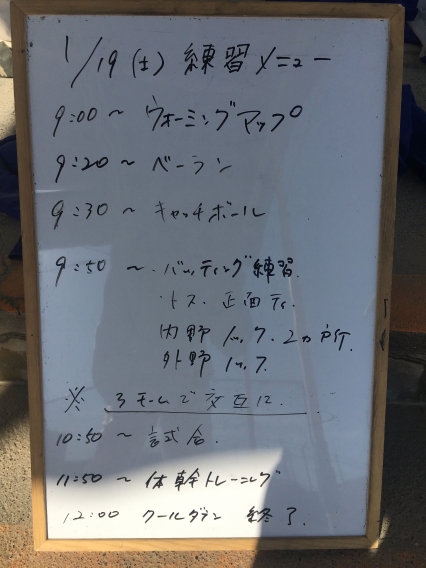 1/19(土) 練習メニュー
9:00〜 ウォーミングアップ
9:20〜 ベーラン
9:30〜 キャッチボール
9:50 〜 ・バッティング練習.
・トス. 正面ティ.
内野ノック. 2ヵ所.
外野ノック
※ 3チームで交互に.
10:50〜 試合.
11:50〜 体幹トレーニング
12:00 クールダウン 終了.